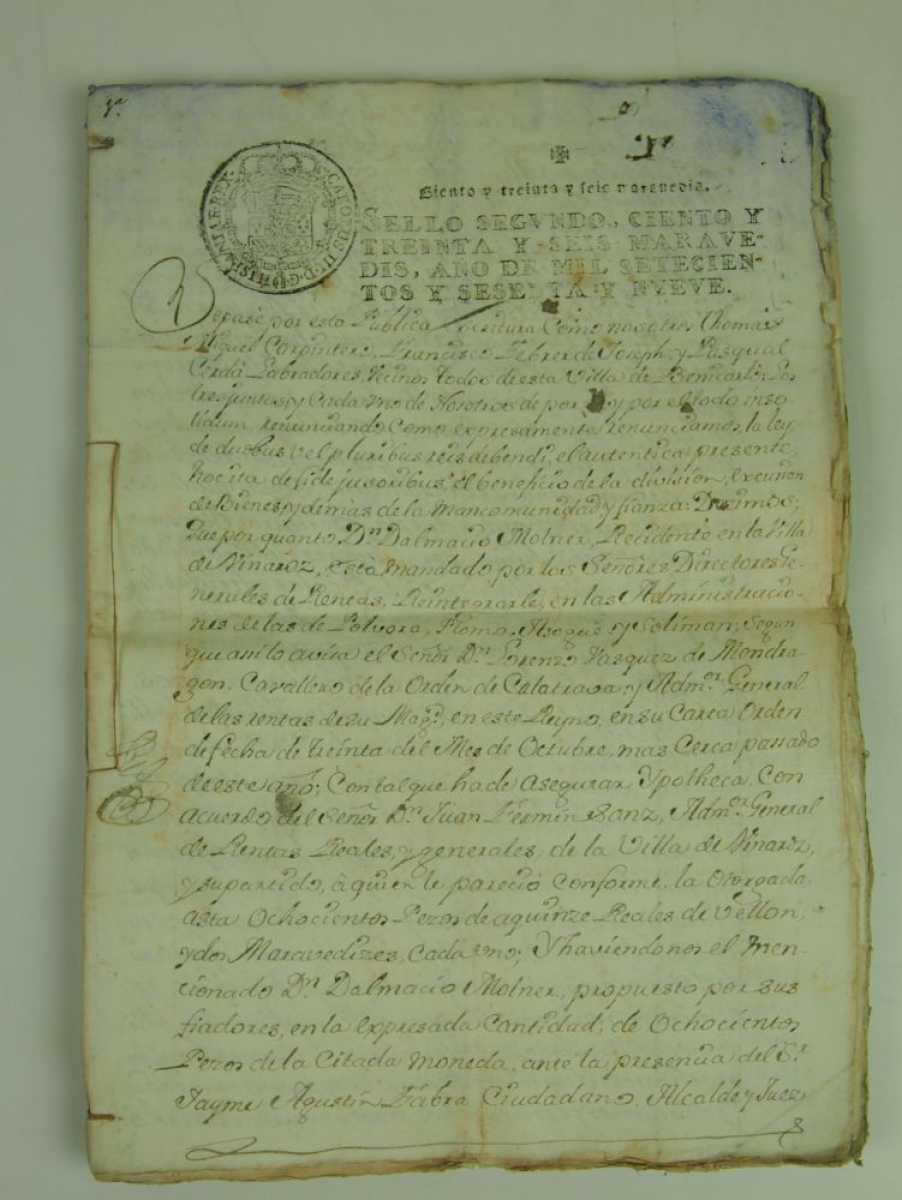 CAROLUS III D G HISPANIAR REX
Ciento y treinta y seis maravedis.
SELLO SEGVNDO, CIENTO Y
TREINTA Y SEIS MARAVE-
DIS, AÑO DE MIL SETECIEN-
TOS Y SESENTA Y NVEVE.
Sepase por esta Publica Escritura Como nosotros Thomas
Miquel Carpintero, Francisco Febrer de Joseph, y Pasqual
Cerdá Labradores, Vecinos todos de esta Villa de Benicarló, Los
tres juntos, y Cada uno de Nosotros de por si, y por el todo inso
lidum, renunciando Como expresamente renunciamos la ley
de duobus vel pluribus reis debendi, el autentica presente,
hoc ita de fide jusoribus, el beneficio de la division, Excucion
de Bienes, y demas de la Mancomunidad, y fianza: Dezimos;
Que por quanto Dn Dalmacio Molner, Recidente en la Villa
de Vinaroz, està mandado por los Señores Directores Ge-
nerales de Rentas, Reintegrarle, en las Administracio-
nes de las de Polvora, Plomo, Asogue, y Soliman, Segun
que asi lo avisa el Señor Dn Lorenzo Vasquez de Mondra-
gon, Cavallero de la Orden de Calatrava, y Admor General
de las rentas de su Magd, en este Reyno, en su Carta Orden
de fecha de treinta del Mes de Octubre, mas Cerca passado
de este año; Con tal que ha de asegurar Ypotheca, Con
acuerdo del Señor Dn Juan Fermin Sanz, Admor General
de Rentas Reales, y generales, de la Villa de Vinaroz,
y su partido, à quien le pareció conforme, la Otorgada
asta Ochocientos Pezos de a quinze Reales de Vellon,
y dos Maravedizes, Cada uno; Y haviendonos el men-
cionado Dn Dalmacio Molner, propuesto por sus
fiadores, en la expresada Cantidad, de Ochocientos
Pezos de la Citada moneda, ante la presencia del Sr
Jayme Agustin Fabra Ciudadano, Alcalde y Juez